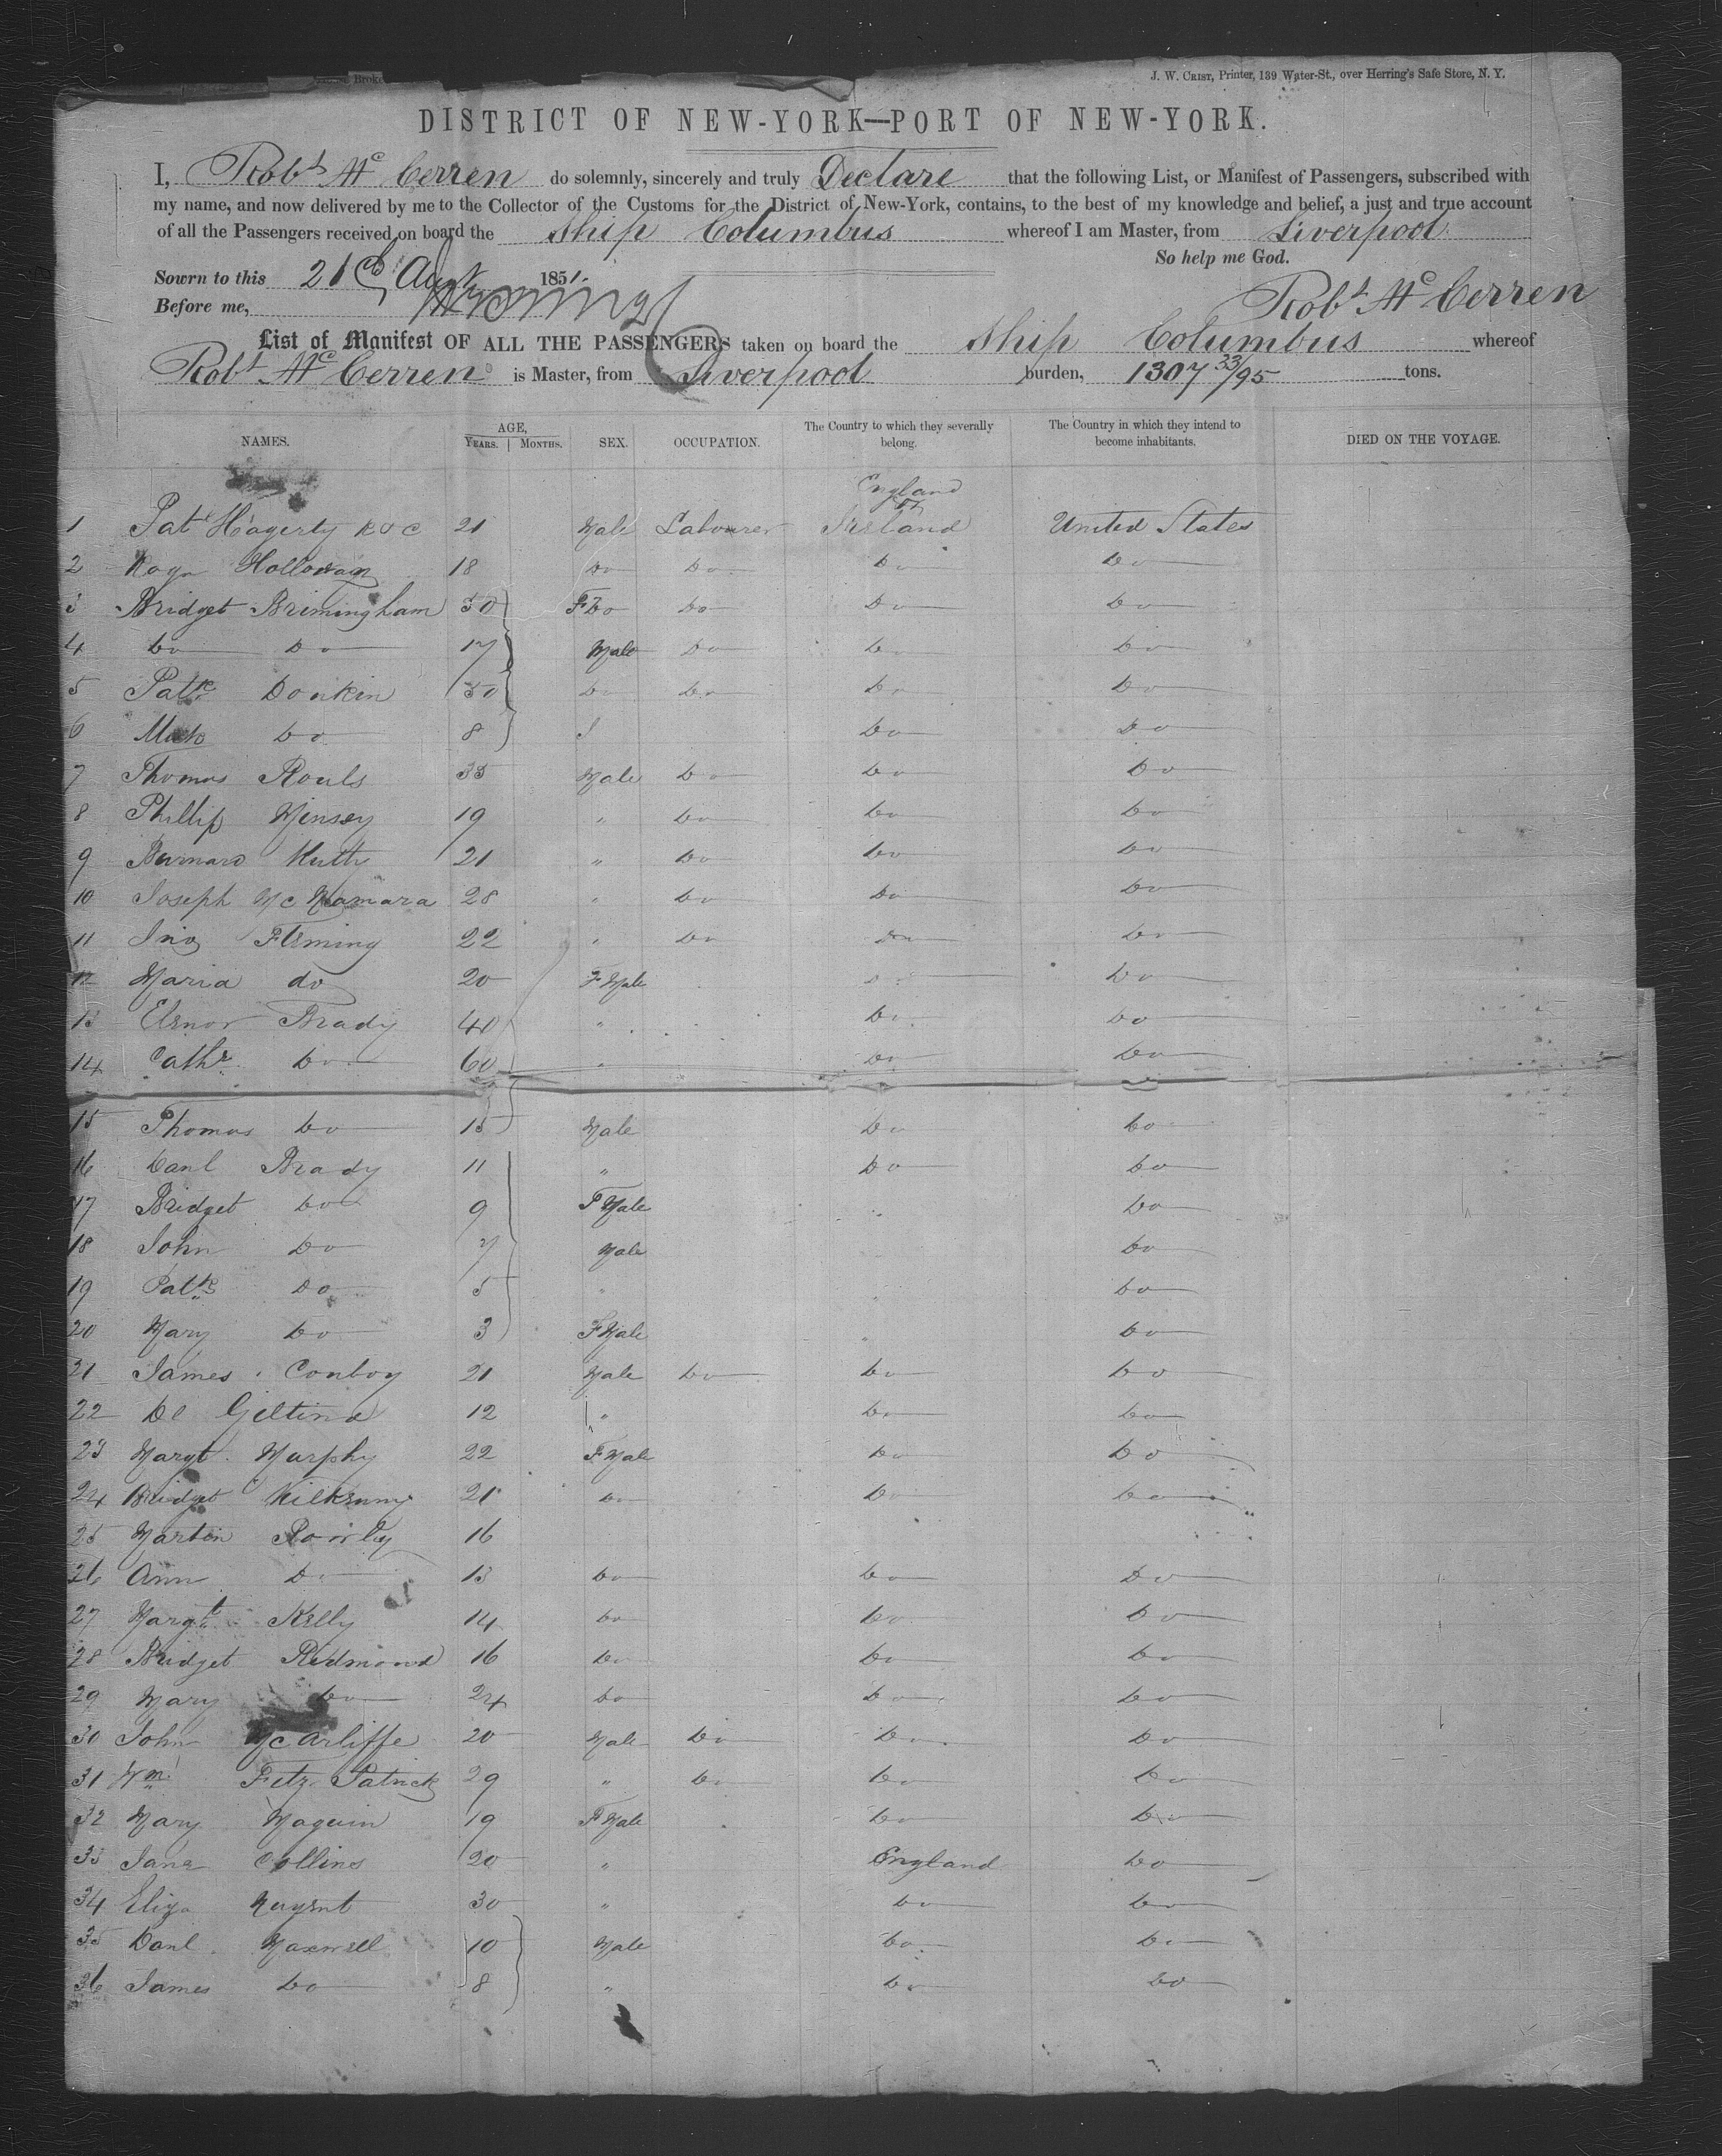 J. W. Crist, Printer, 139 Water-St., over Herring's Safe Store, N. Y.
DISTRICT OF NEW-YORK—PORT OF NEW-YORK.
I, Robt Mc Cerren do solemnly, sincerely and truly Declare that the following List, or Manifest of Passengers, subscribed with
my name, and now delivered by me to the Collector of the Customs for the District of New-York, contains, to the best of my knowledge and belief, a just and true account
of all the Passengers received on board the Ship Columbus whereof I am Master, from Liverpool.
So help me God.
Sowrn to this 21st Augt 1851
Robt Mc Cerren
Before me,
List of Manifest OF ALL THE PASSENGERS taken on board the Ship Columbus whereof
Robt Mc Cerren is Master, from Liverpool burden, 1307 33/95 tons.
NAMES. AGE, YEARS. MONTHS. SEX. OCCUPATION. The Country to which they severally belong. The Country in which they intend to become inhabitants. DIED ON THE VOYAGE.
England
1 Pat Hagerty 21 Male Labourer Ireland United States
2 Holloway 18 Do Do Do Do
3 Bridget Brimingham 50 F Do Do Do Do
4 Do Do 17 Male Do Do Do
5 Patk Donkin 50 Do Do Do Do
6 Do 8 Do Do
7 Thomas Rouls 35 Male Do Do Do
8 Phillip Kinsey 19 " Do Do Do
9 Barnard 21 " Do Do Do
10 Joseph Mc Namara 28 " Do Do Do
11 Jno Fleming 22 " Do Do Do
12 Maria do 20 F Male Do Do
13 Elenor Brady 40 " Do Do
14 Cathe Do 60 " Do Do
15 Thomas Do 15 Male Do Do
16 Danl Brady 11 " Do Do
17 Bridget Do 9 F Male " Do
18 John Do 7 Male Do
19 Patk Do 5 " " Do
20 Mary Do 3 F Male " Do
21 James Conboy 21 Male Do Do Do
22 12 " Do Do
23 Margt Murphy 22 F Male Do Do
24 Bridget Kilkenny 21 Do Do Do
25 Martin Rowley 16
26 Ann Do 13 Do Do Do
27 Margt Kelly 14 Do Do Do
28 Bridget Redmond 16 Do Do Do
29 Mary Do 24 Do Do Do
30 John Mc Arliffe 20 Male Do Do Do
31 Wm Fitz Patrick 29 " Do Do Do
32 Mary Maguin 19 F Male Do Do
33 Jane Collins 20 " England Do
34 Eliza Nugent 30 " Do Do
35 Danl Maxwell 10 Male Do Do
36 James Do 8 " Do Do